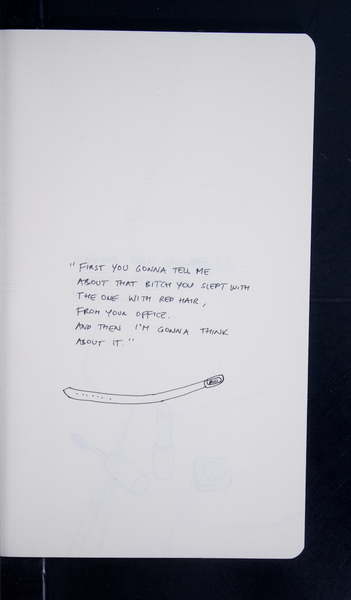 "FIRST YOU GONNA TELL ME
ABOUT THAT BITCH YOU SLEPT WITH
THE ONE WITH RED HAIR,
FROM YOUR OFFICE.
AND THEN I'M GONNA THINK
ABOUT IT."